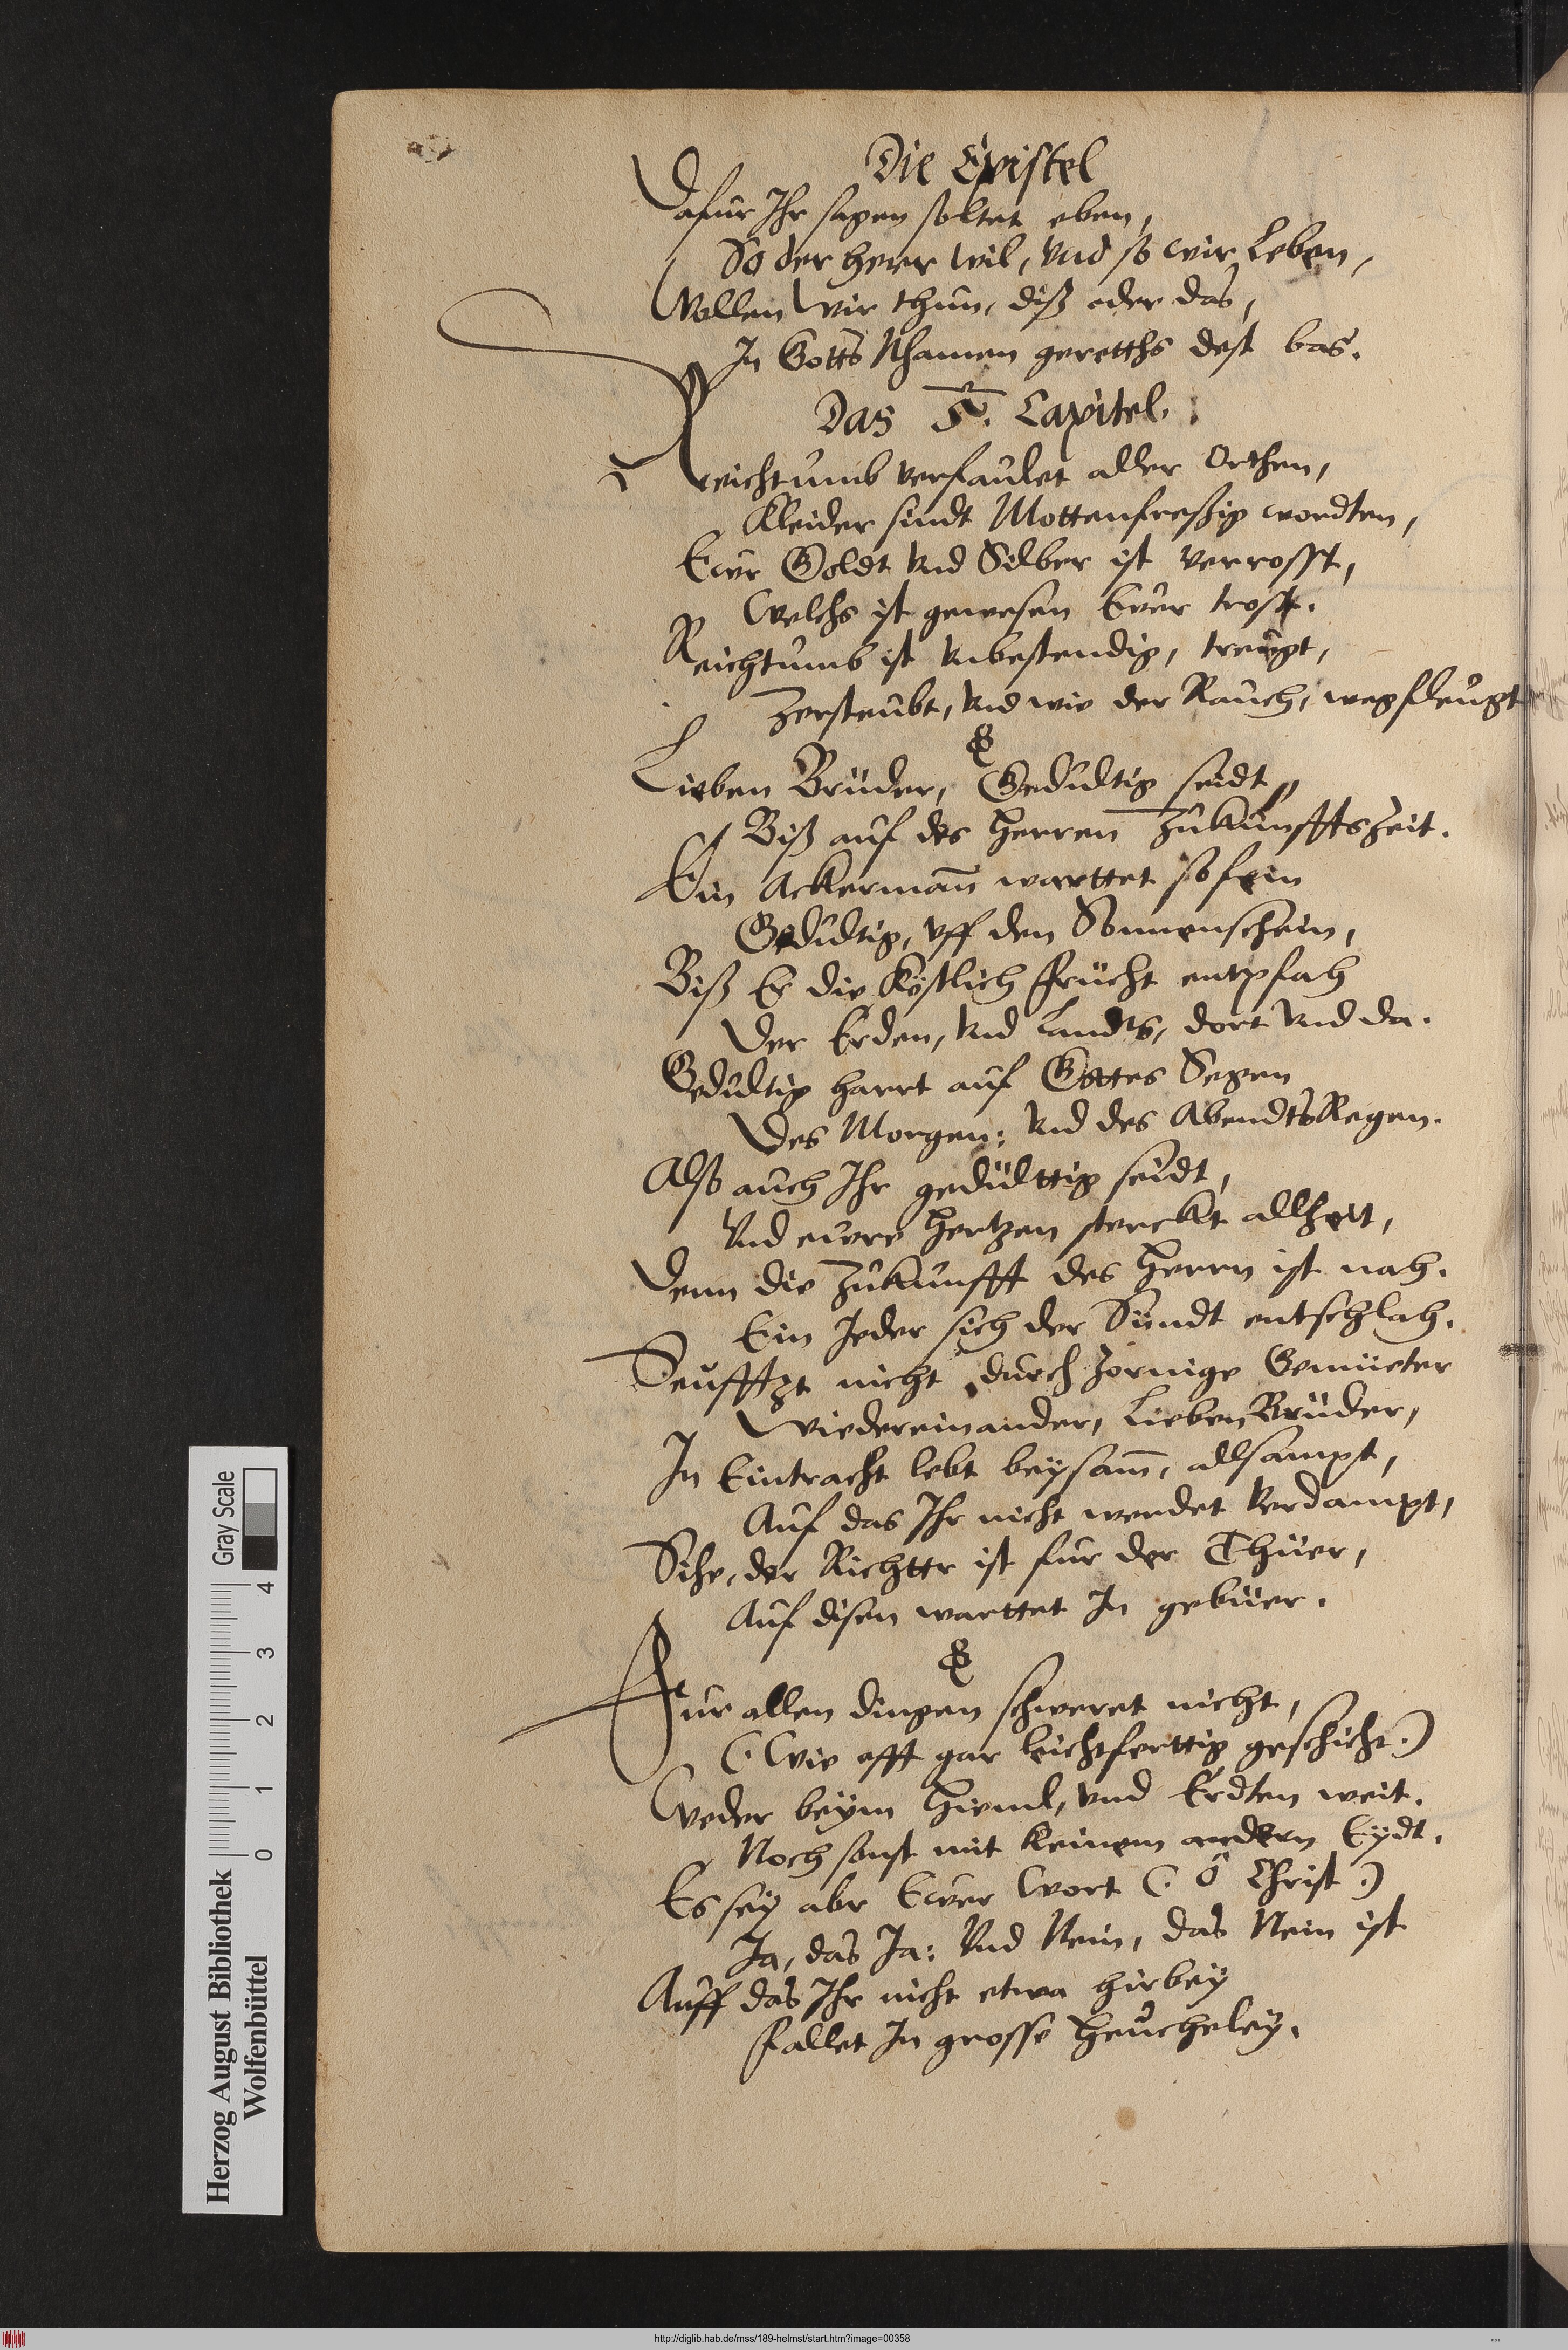 Die Epistel
Dafur Ihr sagen soltet eben,
So der Herr wil, Vnd so wir Leben,
Wollen wir thun, diß oder das,
In Gotts Nhamen gerettts dest bas.
Das 5. Capitel.
Reichtumb verfaulet aller Orthen,
Kleider sindt Mottenfreßig wordten,
Ewr Goldt Vnd Silber ist verrosst,
Welchs ist gewesen Ewer trost.
Reichtumb ist Vnbestendig, treugt,
Zersteubt, Vnd wie der Rauch, wegfleugt
Lieben Brüder, Gedultig seidt,
Biß auf des Herren Zukunfftszeit.
Ein Ackerman̄ warttet so fein
Gedultig, vff den Sonnenschein,
Biß Er die Köstlich Frücht entpfah
Der Erden, Vnd Landts, dort Vnd da.
Gedultig harrt auf Gottes Segen
Des Morgen: Vnd des AbendtsRegen.
Also auch Ihr gedülttig seidt,
Vnd ewre Hertzen sterckt allzeit,
Denn die Zukunfft des Herrn ist nah.
Ein Jeder sich der Sündt entschlah.
Seufftzt nicht durch zornige Gemüeter
Wiedereinander, Lieben Brüder,
In Eintracht lebt beysam̄, allsampt,
Auf das Ihr nicht werdet Verdampt,
Sihe, der Richttr ist fur der Thüer,
Auf disen warttet In gebüer.
Fur allen dingen schweret nicht,
(Wie offt gar leichtferttig geschicht.)
Weder beym Himml, vnd Erdten weit.
Noch sonst mit keinem andern Eydt.
Es sey abr Ewer Wort (o Christ)
Ja, das Ja: Vnd Nein, das Nein ist
Auff das Ihr nicht etwa hirbey
Fallet In grosse Heucheley.
Herzog August Bibliothek
Wolfenbüttel
0 1 2 3 4
Gray Scale
http://diglib.hab.de/mss/189-helmst/start.htm?image=00358